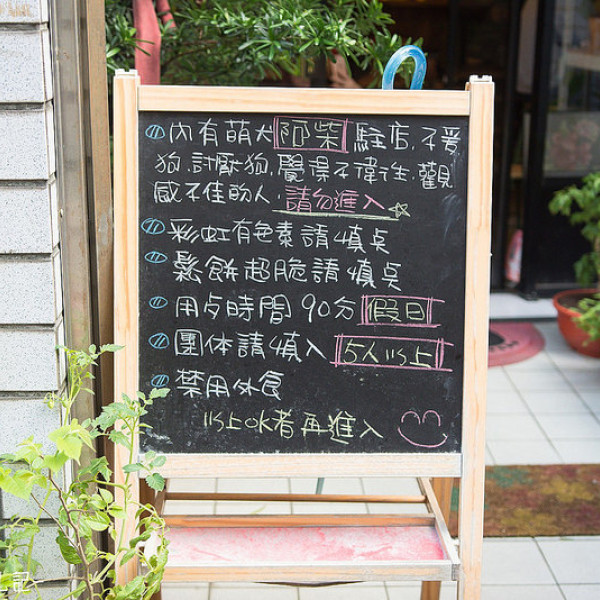 內有萌犬 阿柴 駐店，不愛
狗，討厭狗，覺得不衛生，觀
感不佳的人，請勿進入
彩虹有色素請慎点
鬆餅超脆請慎点
用歺時間 90分 假日
團体請慎入 5人以上
禁用外食
以上OK者再進入
記